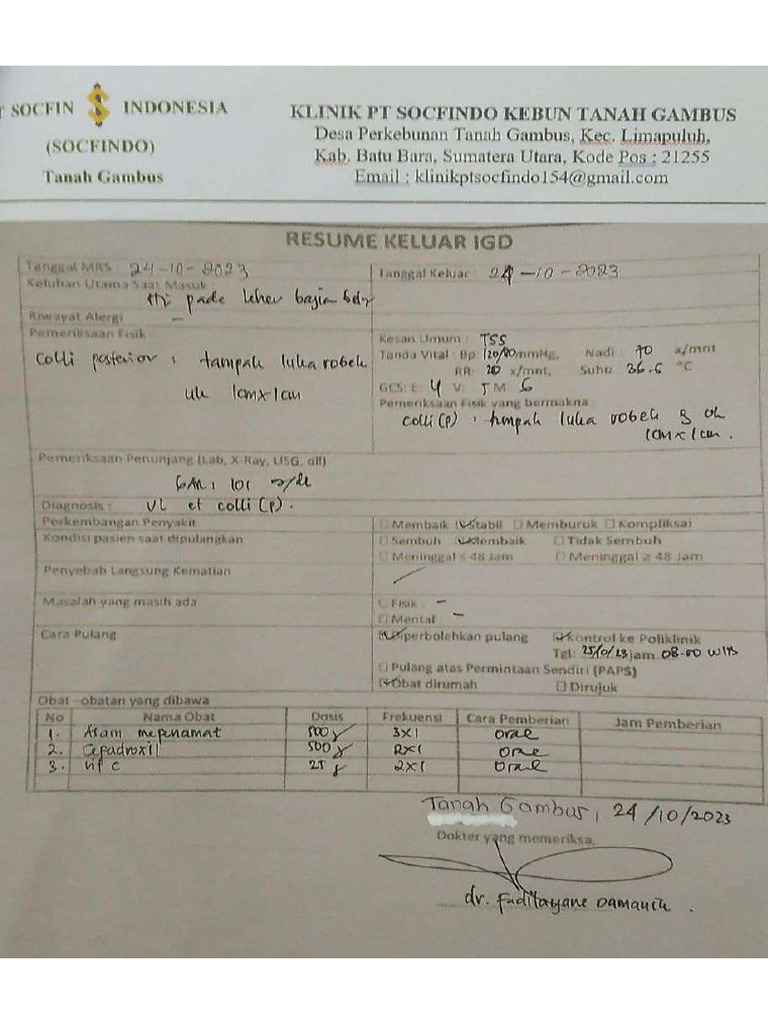 T SOCFIN INDONESIA
(SOCFINDO)
Tanah Gambus
KLINIK PT SOCFINDO KEBUN TANAH GAMBUS
Desa Perkebunan Tanah Gambus, Kec. Limapuluh,
Kab. Batu Bara, Sumatera Utara, Kode Pos : 21255
Email : klinikptsocfindo154@gmail.com
RESUME KELUAR IGD
Tanggal MRS : 24-10-2023
Tanggal Keluar : 24-10-2023
Keluhan Utama Saat Masuk
pada leher bagian
Riwayat Alergi -
Pemeriksaan Fisik
Colli posterior : tampak luka robek
uk 1cmx1cm
Kesan Umum : TSS
Tanda Vital : Bp 120/80mmHg, Nadi : 70 x/mnt
RR: 20 x/mnt, Suhu 36.6 °C
GCS: E: 4 V: 5 M 6
Pemeriksaan Fisik yang bermakna :
colli (p) : tampak luka robek uk
1cmx1cm.
Pemeriksaan Penunjang (Lab, X-Ray, USG, dll)
101
Diagnosis : VL et colli (p).
Perkembangan Penyakit
Membaik Stabil Memburuk Kompliksai
Kondisi pasien saat dipulangkan
Sembuh Membaik Tidak Sembuh
Meninggal ≤ 48 Jam Meninggal ≥ 48 Jam
Penyebab Langsung Kematian
Masalah yang masih ada
Fisik : -
Mental : -
Cara Pulang
Diperbolehkan pulang Kontrol ke Poliklinik
Tgl: jam 08.00 WIB
Pulang atas Permintaan Sendiri (PAPS)
Obat dirumah Dirujuk
Obat -obatan yang dibawa
No Nama Obat Dosis Frekuensi Cara Pemberian Jam Pemberian
1. Asam mepenamat 500 3x1 oral
2. Cefadroxil 500 2x1 oral
3. vit c 25 2x1 oral
Tanah Gambus, 24/10/2023
Dokter yang memeriksa,
dr. Damanik.